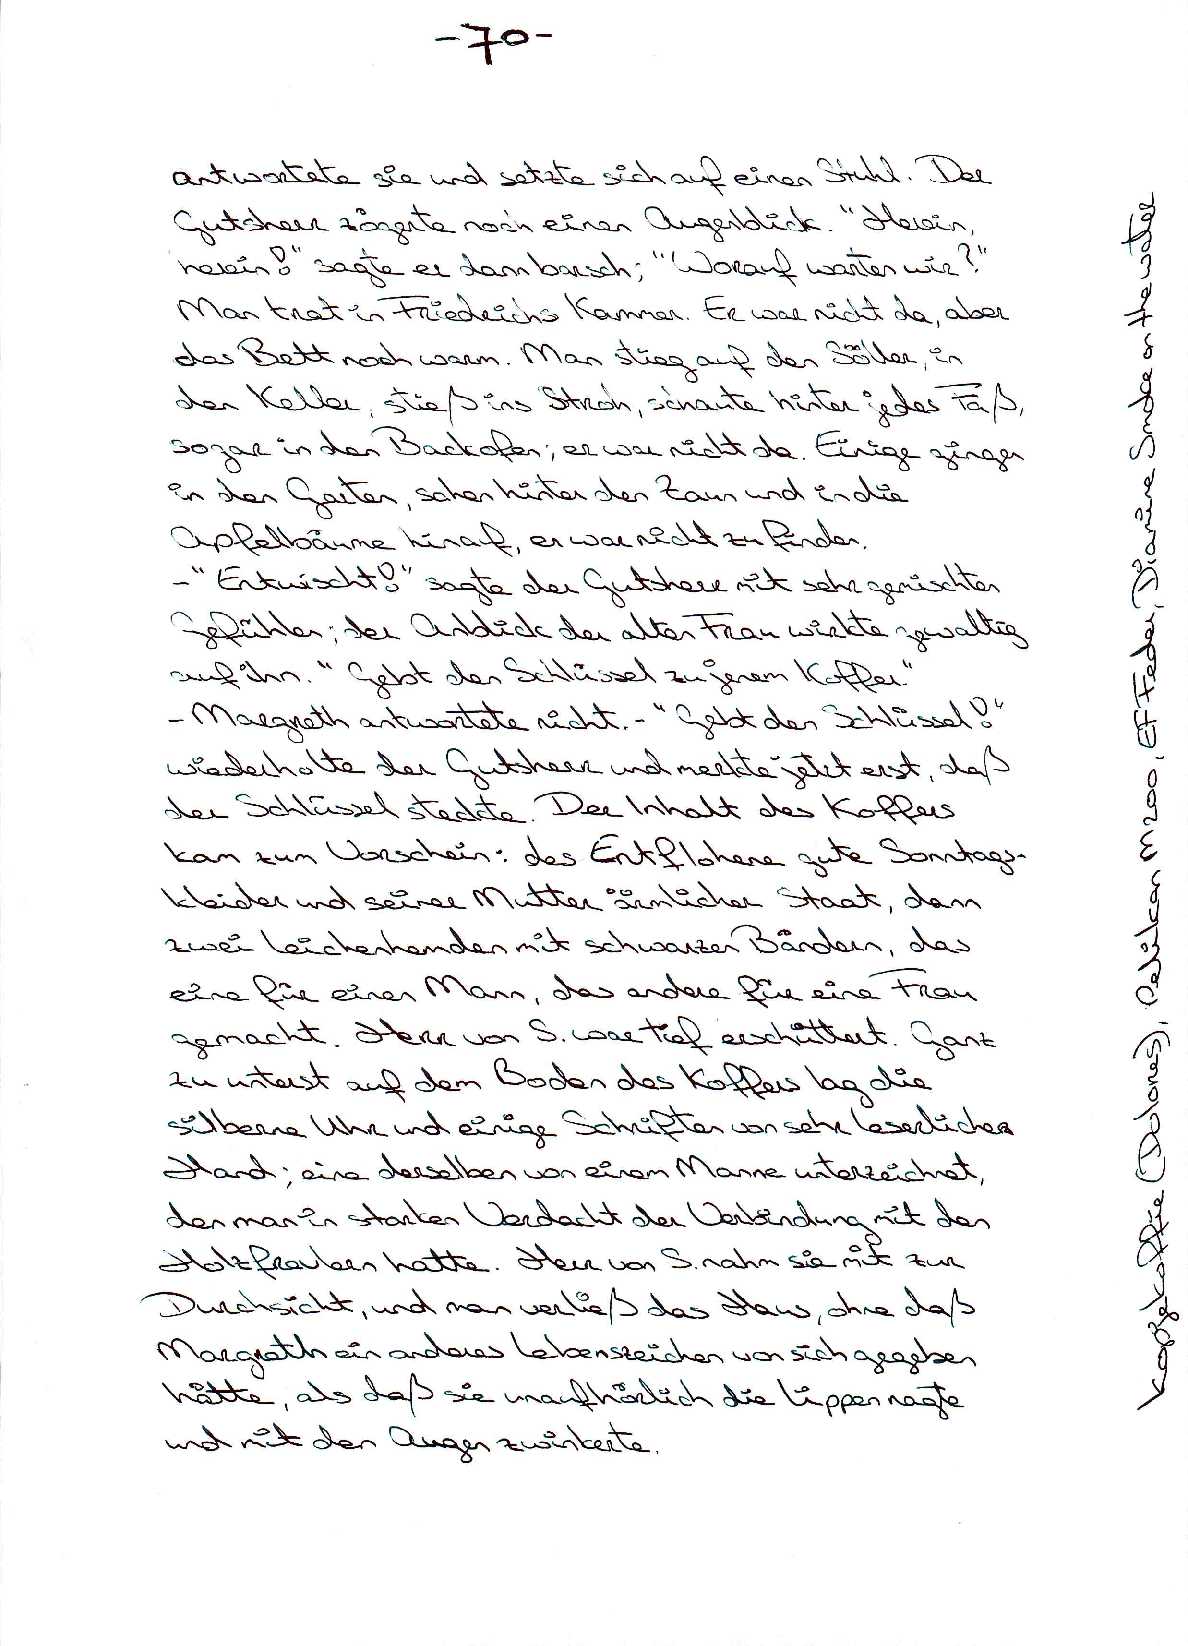 -70-
antwortete sie und setzte sich auf einen Stuhl. Der
Gutsherr zögerte noch einen Augenblick. "Herein,
herein!" sagte er dann barsch; "Worauf warten wir?"
Man trat in Friedrichs Kammer. Er war nicht da, aber
das Bett noch warm. Man stieg auf den Söller, in
den Keller, stieß ins Stroh, schaute hinter jedes Faß,
sogar in den Backofen; er war nicht da. Einige gingen
in den Garten, sahen hinter den Zaun und in die
Apfelbäume hinauf, er war nicht zu finden.
-"Entwischt!" sagte der Gutsherr mit sehr gemischten
Gefühlen; der Anblick der alten Frau wirkte gewaltig
auf ihn. "Gebt den Schlüssel zu jenem Koffer."
- Margreth antwortete nicht. - "Gebt den Schlüssel!"
wiederholte der Gutsherr und merkte jetzt erst, daß
der Schlüssel steckte. Der Inhalt des Koffers
kam zum Vorschein: des Entflohene gute Sonntags-
kleider und seiner Mutter ärmlicher Staat, dann
zwei Leichenhemden mit schwarzen Bändern, das
eine für einen Mann, das andere für eine Frau
gemacht. Herr von S. war tief erschüttert. Ganz
zu unterst auf dem Boden des Koffers lag die
silberne Uhr und einige Schriften von sehr leserlicher
Hand; eine derselben von einem Manne unterzeichnet,
den man in starken Verdacht der Verbindung mit den
Holzfrevlern hatte. Herr von S. nahm sie mit zur
Durchsicht, und man verließ das Haus, ohne daß
Margreth ein anderes Lebenszeichen von sich gegeben
hätte, als daß sie unaufhörlich die Lippen nagte
und mit den Augen zwinkerte.
(Dolores), Pelikan M200, EF Feder, Diamine Smoke on the water